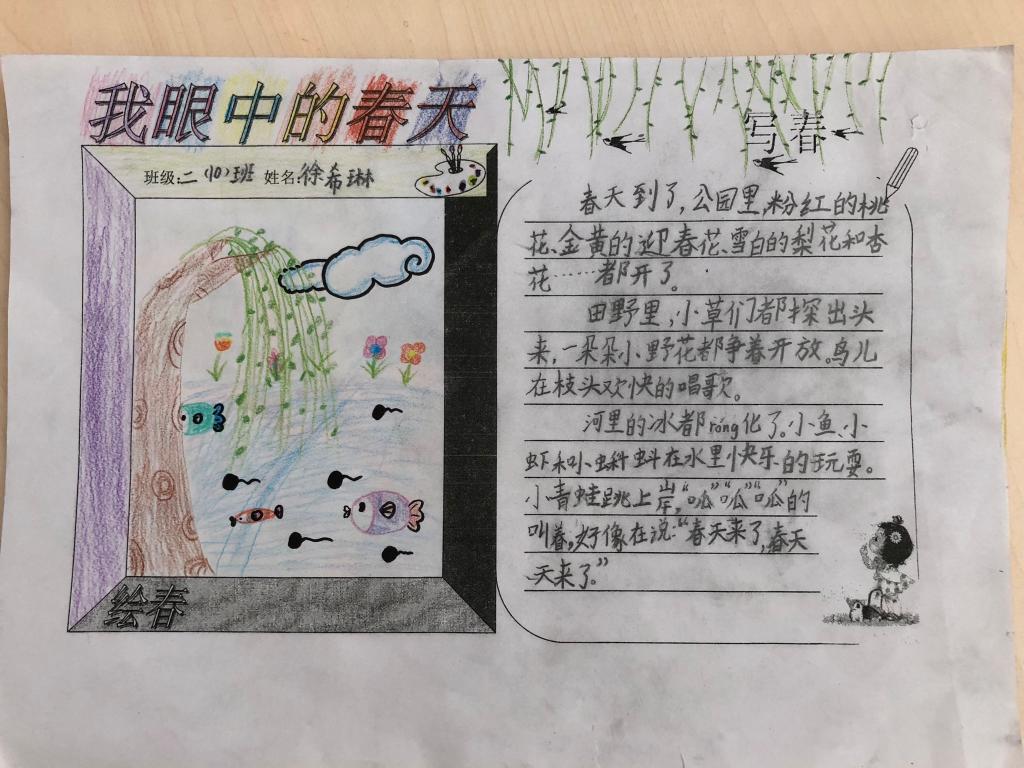 我眼中的春天
班级:二(10)班 姓名:徐希琳
绘春
写春
春天到了,公园里,粉红的桃
花、金黄的迎春花、雪白的梨花和杏
花……都开了。
田野里,小草们都探出头
来,一朵朵小野花都争着开放。鸟儿
在枝头欢快的唱歌。
河里的冰都róng化了。小鱼、小
虾和小蝌蚪在水里快乐的玩耍。
小青蛙跳上岸,“呱”“呱”“呱”的
叫着,好像在说:“春天来了,春天
天来了。”